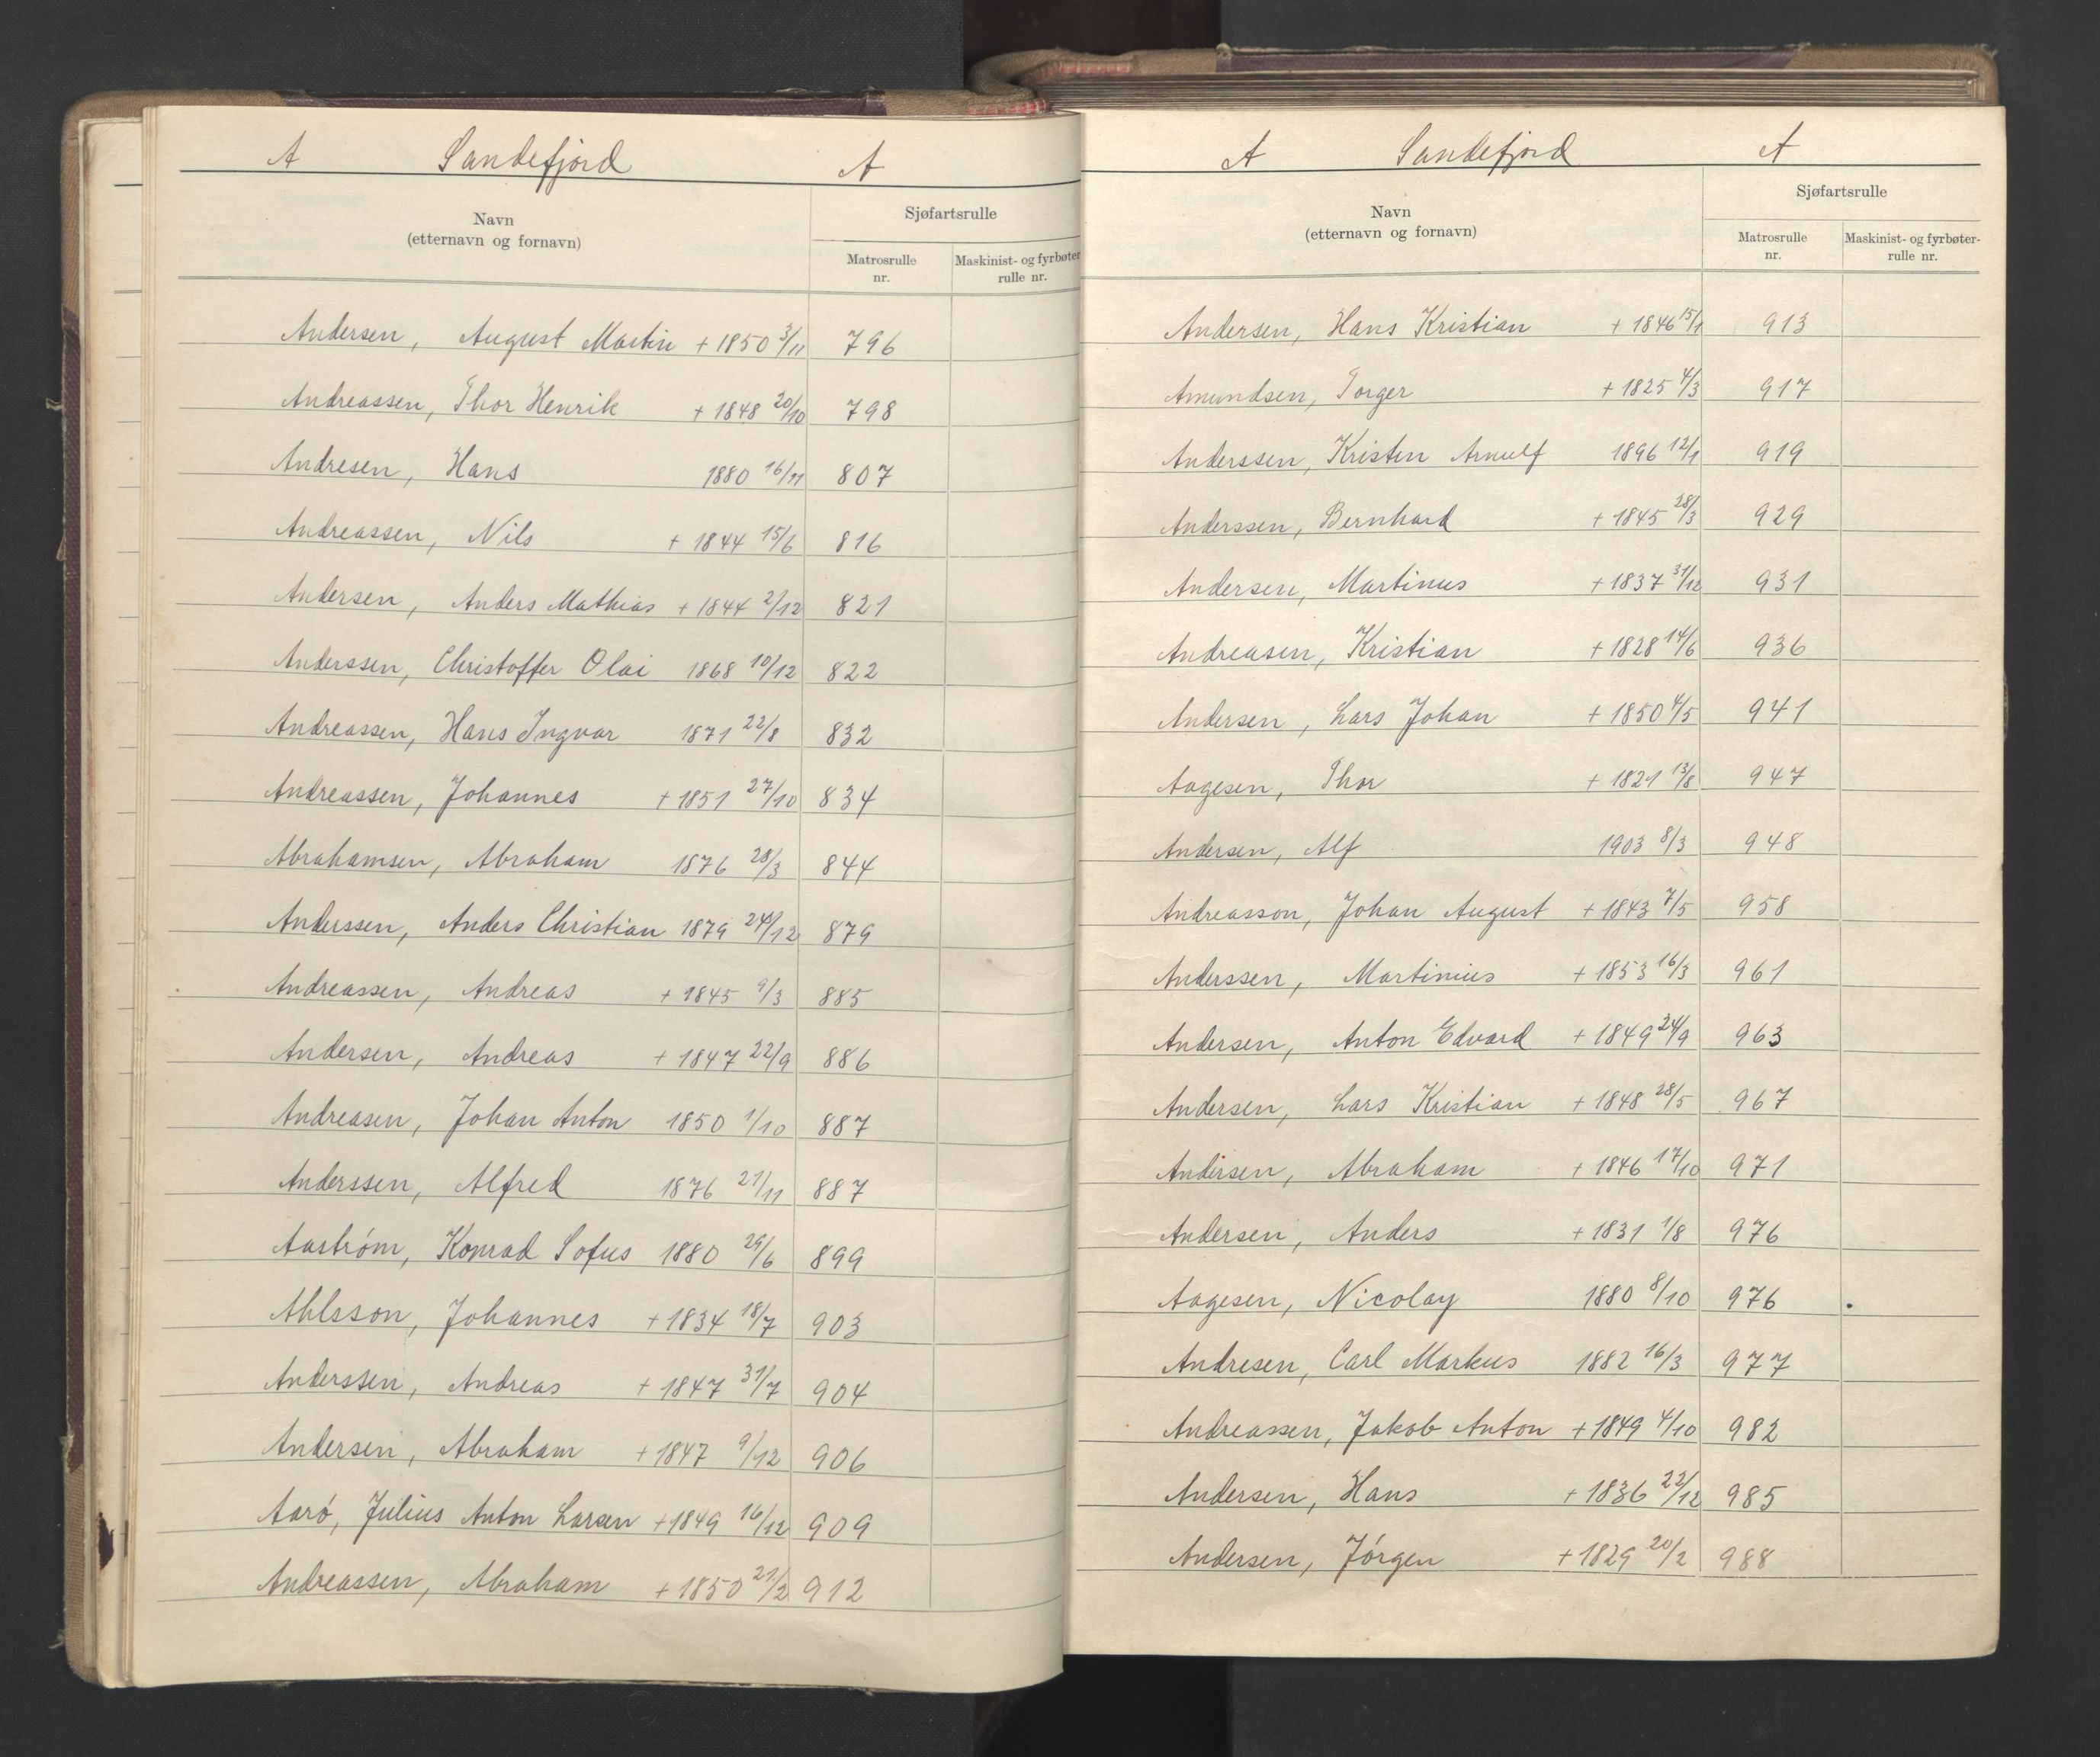 A Sandefjord A
Navn
(etternavn og fornavn)
Sjøfartsrulle
Matrosrulle
nr.
Maskinist- og fyrbøter
rulle nr.
Andersen, August Martin + 1850 3/11 796
Andreassen, Thor Henrik + 1848 20/10 798
Andresen, Hans 1880 16/11 807
Andreassen, Nils + 1844 15/6 816
Andersen, Anders Mathias + 1844 2/12 821
Anderssen, Christoffer Olai 1868 10/12 822
Andreassen, Hans Ingvar 1871 22/8 832
Andreassen, Johannes + 1851 27/10 834
Abrahamsen, Abraham 1876 28/3 844
Anderssen, Anders Christian 1879 24/12 879
Andreassen, Andreas + 1845 9/3 885
Andersen, Andreas + 1847 22/9 886
Andreasen, Johan Anton 1850 1/10 887
Anderssen, Alfred 1876 21/11 887
Aastrøm, Konrad Sofus 1880 29/6 899
Ahlsson, Johannes + 1834 18/7 903
Anderssen, Andreas + 1847 31/7 904
Andersen, Abraham + 1847 9/12 906
Aarø, Julius Anton Larsen + 1849 16/12 909
Andreassen, Abraham + 1850 21/2 912
A Sandefjord A
Navn
(etternavn og fornavn)
Sjøfartsrulle
Matrosrulle
nr.
Maskinist- og fyrbøter-
rulle nr.
Andersen, Hans Kristian + 1846 15/1 913
Amundsen, Torger + 1825 4/3 917
Anderssen, Kristen Arnulf 1896 12/1 919
Anderssen, Bernhard + 1845 28/3 929
Andersen, Martinus + 1837 31/12 931
Andreasen, Kristian + 1828 14/6 936
Andersen, Lars Johan + 1850 4/5 941
Aagesen, Thor + 1821 13/8 947
Andersen, Alf 1903 8/3 948
Andreasson, Johan August + 1843 7/5 958
Anderssen, Martinius + 1853 16/3 961
Andersen, Anton Edvard + 1849 24/9 963
Andersen, Lars Kristian + 1848 28/5 967
Andersen, Abraham + 1846 17/10 971
Andersen, Anders + 1831 1/8 976
Aagesen, Nicolay 1880 8/10 976
Andresen, Carl Markus 1882 16/3 977
Andreassen, Jakob Anton + 1849 4/10 982
Andersen, Hans + 1836 22/12 985
Andersen, Jørgen + 1829 20/2 988